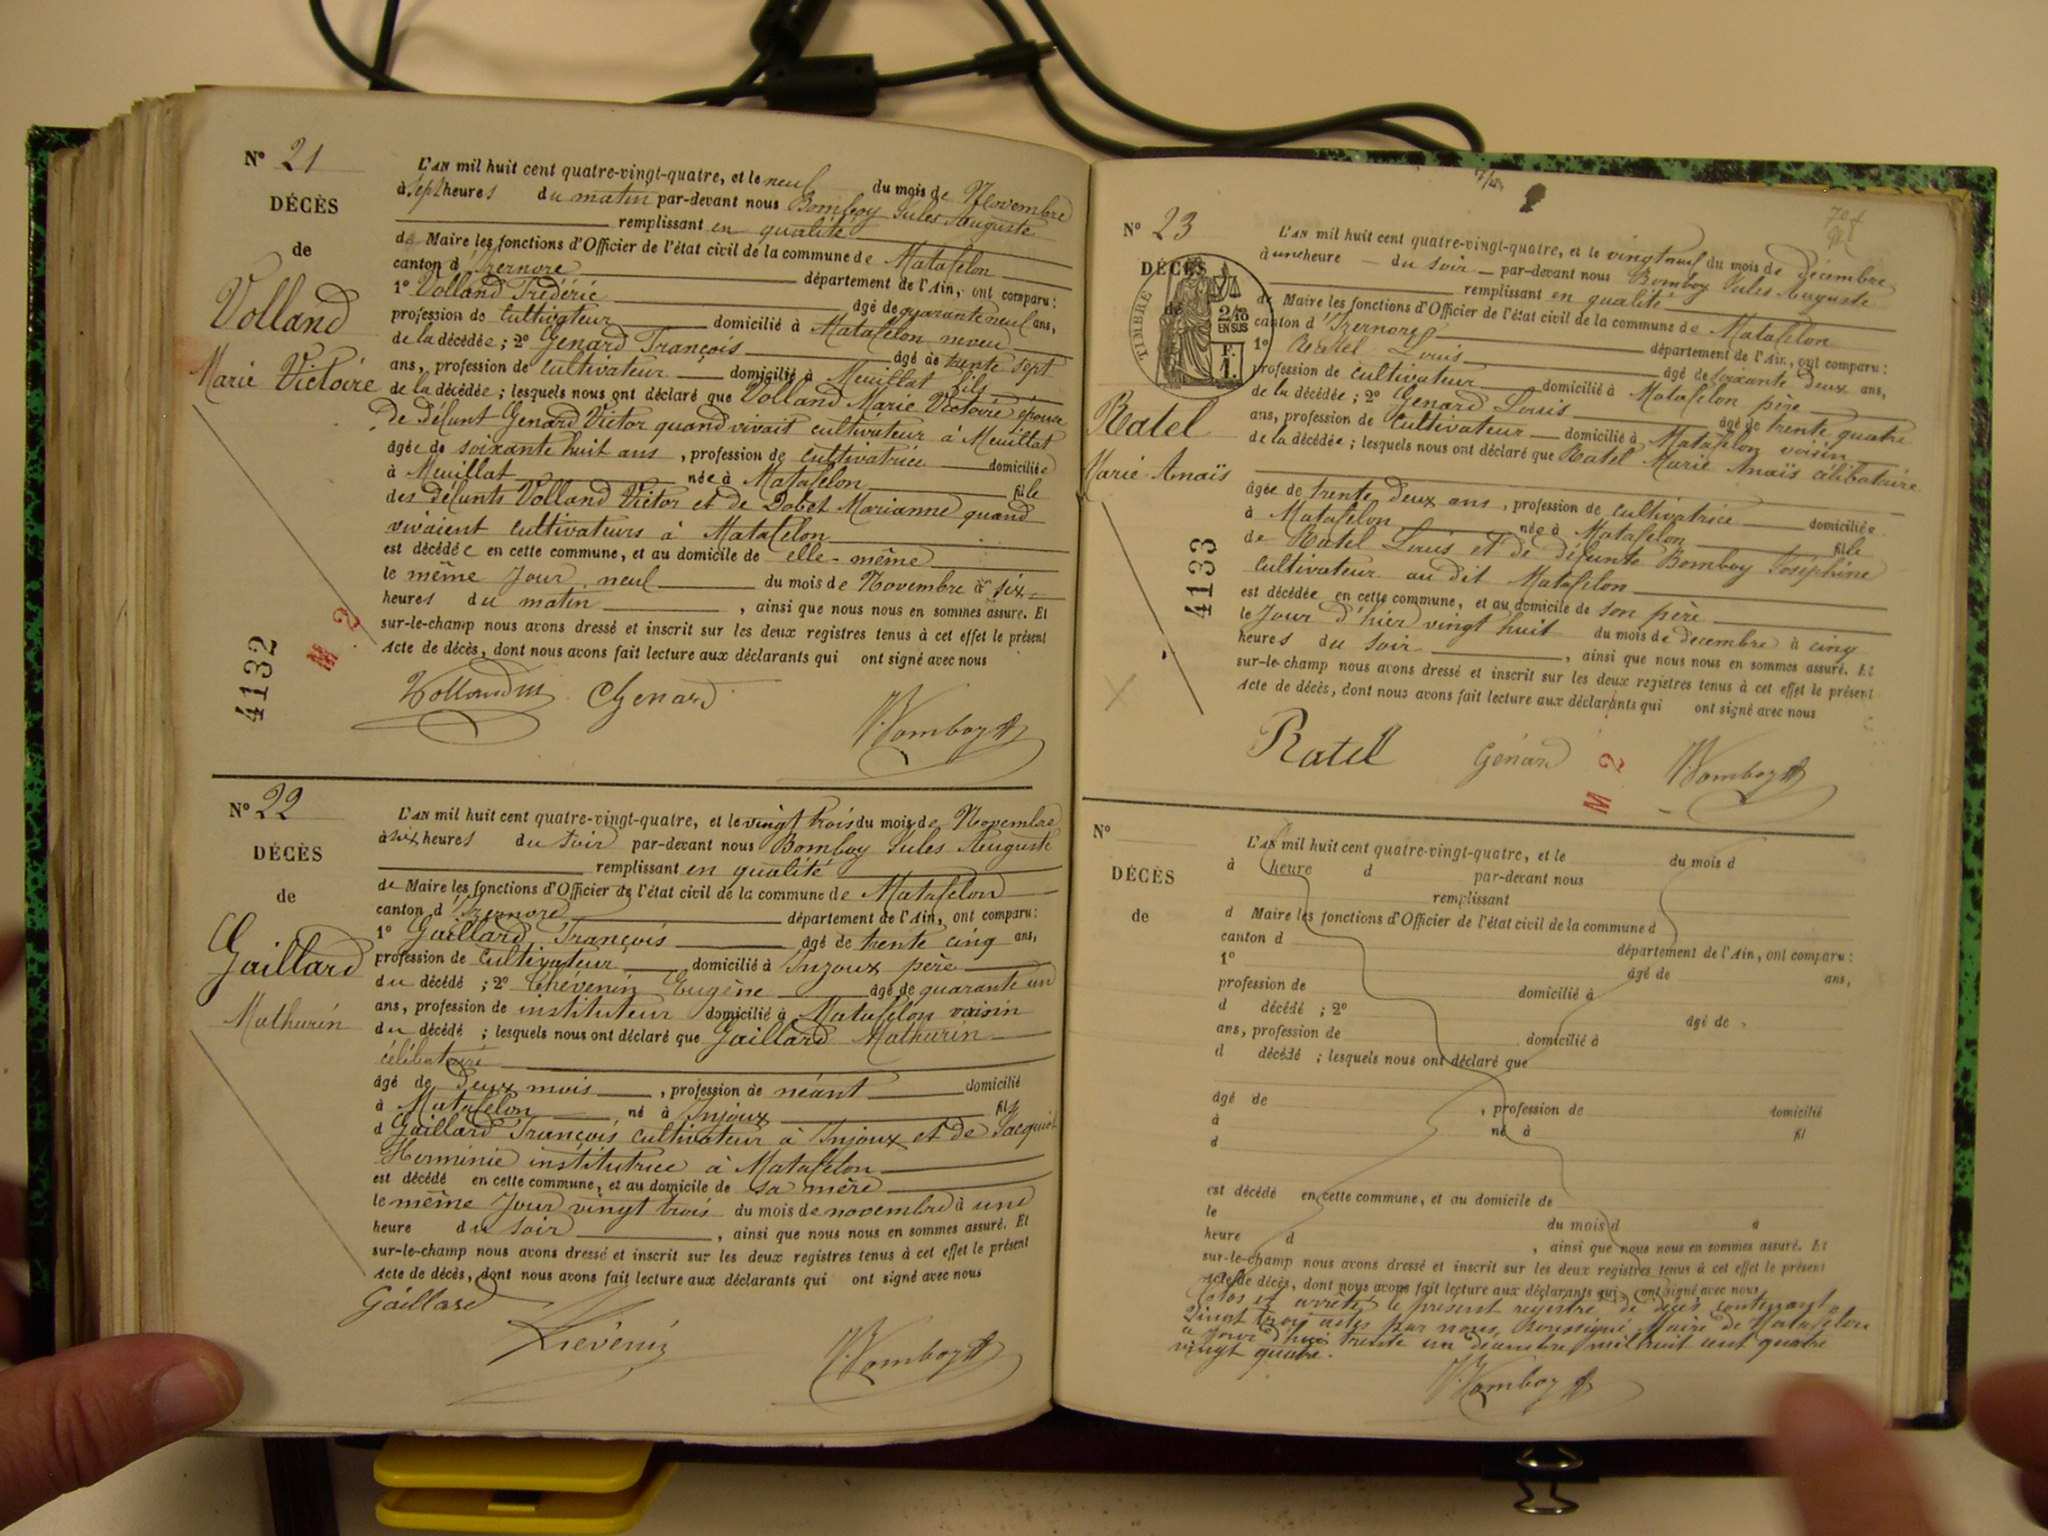 N° 21
DÉCÈS
de
Volland
Marie Victoire
4132
M 2
L'AN mil huit cent quatre-vingt-quatre, et le neuf du mois de Novembre
à sept heures du matin par-devant nous Bomboy Jules Auguste
remplissant en qualité
de Maire les fonctions d'Officier de l'état civil de la commune de Matafelon
canton d'Izernore département de l'Ain, ont comparu:
1° Volland Frédéric âgé de quarante neuf ans,
profession de cultivateur domicilié à Matafelon neveu
de la décédée; 2° Genard François âgé de trente sept
ans, profession de cultivateur domicilié à Meuillat fils
de la décédée; lesquels nous ont déclaré que Volland Marie Victoire épouse
de défunt Genard Victor quand vivait cultivateur à Meuillat
âgée de soixante huit ans, profession de cultivatrice domiciliée
à Meuillat née à Matafelon fille
des défunts Volland Victor et de Dobet Marianne quand
vivaient cultivateurs à Matafelon
est décédée en cette commune, et au domicile de elle-même
le même jour neuf du mois de Novembre à six
heures du matin, ainsi que nous nous en sommes assuré. Et
sur-le-champ nous avons dressé et inscrit sur les deux registres tenus à cet effet le présent
Acte de décès, dont nous avons fait lecture aux déclarants qui ont signé avec nous
Volland Genard Bomboy
N° 22
DÉCÈS
de
Gaillard
Mathurin
L'AN mil huit cent quatre-vingt-quatre, et le vingt trois du mois de Novembre
à six heures du soir par-devant nous Bomboy Jules Auguste
remplissant en qualité
de Maire les fonctions d'Officier de l'état civil de la commune de Matafelon
canton d'Izernore département de l'Ain, ont comparu:
1° Gaillard François âgé de trente cinq ans,
profession de cultivateur domicilié à Injoux père
du décédé; 2° Thévenin Eugène âgé de quarante un
ans, profession de instituteur domicilié à Matafelon voisin
du décédé; lesquels nous ont déclaré que Gaillard Mathurin
célibataire
âgé de deux mois, profession de néant domicilié
à Matafelon né à Injoux fils
d Gaillard François cultivateur à Injoux et de Jacquiot
Herminie institutrice à Matafelon
est décédé en cette commune, et au domicile de sa mère
le même jour vingt trois du mois de novembre à une
heure du soir, ainsi que nous nous en sommes assuré. Et
sur-le-champ nous avons dressé et inscrit sur les deux registres tenus à cet effet le présent
Acte de décès, dont nous avons fait lecture aux déclarants qui ont signé avec nous
Gaillard
Thévenin Bomboy
N° 23
DÉCÈS
de
TIMBRE
2/10
EN SUS
F.
1.
Ratel
Marie Anaïs
4133
L'AN mil huit cent quatre-vingt-quatre, et le vingt neuf du mois de décembre
à une heure du soir par-devant nous Bomboy Jules Auguste
remplissant en qualité
de Maire les fonctions d'Officier de l'état civil de la commune de Matafelon
canton d'Izernore département de l'Ain, ont comparu:
1° Ratel Louis âgé de soixante deux ans,
profession de cultivateur domicilié à Matafelon père
de la décédée; 2° Genard Louis âgé de trente quatre
ans, profession de cultivateur domicilié à Matafelon voisin
de la décédée; lesquels nous ont déclaré que Ratel Marie Anaïs célibataire
âgée de trente deux ans, profession de cultivatrice domiciliée
à Matafelon née à Matafelon fille
de Ratel Louis et de défunte Bomboy Joséphine
cultivateur au dit Matafelon
est décédée en cette commune, et au domicile de son père
le jour d'hier vingt huit du mois de décembre à cinq
heures du soir, ainsi que nous nous en sommes assuré. Et
sur-le-champ nous avons dressé et inscrit sur les deux registres tenus à cet effet le présent
Acte de décès, dont nous avons fait lecture aux déclarants qui ont signé avec nous
Ratel Génard M 2 Bomboy
N°
DÉCÈS
de
L'AN mil huit cent quatre-vingt-quatre, et le du mois d
à heure d par-devant nous
remplissant
d Maire les fonctions d'Officier de l'état civil de la commune d
canton d département de l'Ain, ont comparu:
1° âgé de ans,
profession de domicilié à
d décédé; 2° âgé de
ans, profession de domicilié à
d décédé; lesquels nous ont déclaré que
âgé de , profession de domicilié
à né à fil
d
est décédé en cette commune, et au domicile de
le du mois d à
heure d , ainsi que nous nous en sommes assuré. Et
sur-le-champ nous avons dressé et inscrit sur les deux registres tenus à cet effet le présent
Acte de décès, dont nous avons fait lecture aux déclarants qui ont signé avec nous
Clos et arrêté le présent registre de décès contenant
vingt trois actes par nous soussigné Maire de Matafelon
a jourd'hui trente un décembre mil huit cent quatre
vingt quatre.
Bomboy